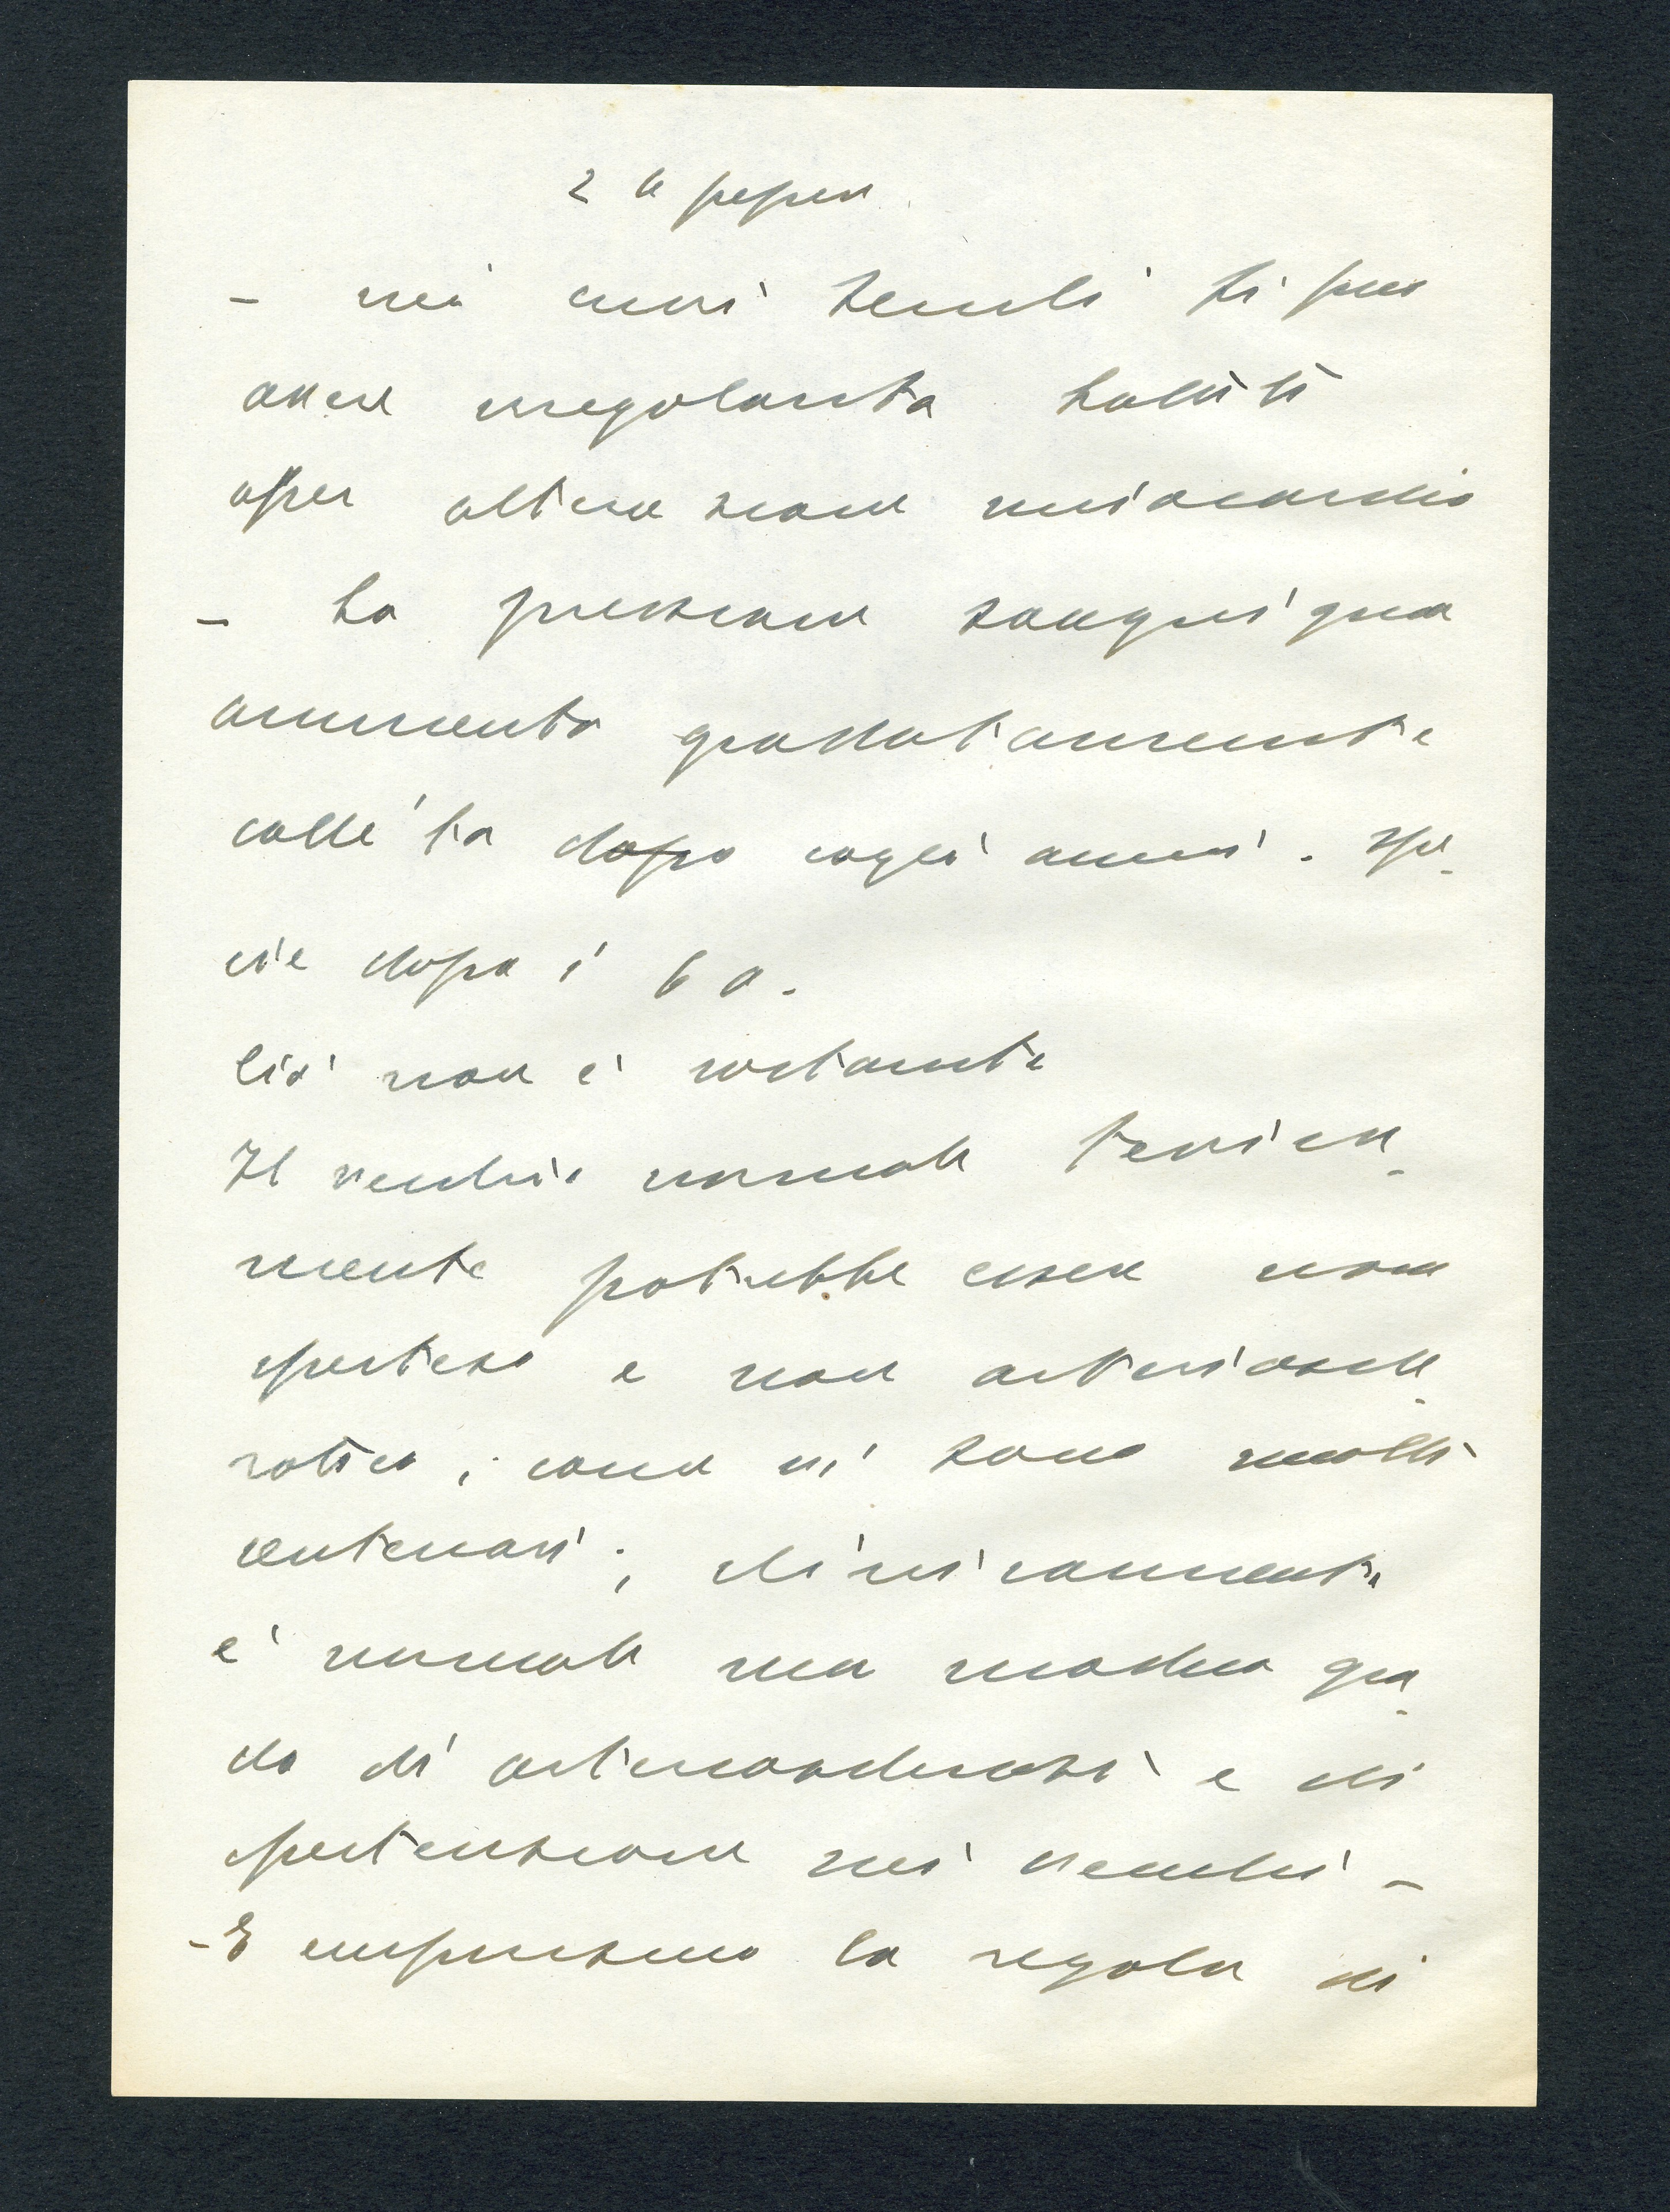 2a pagina
- nei cuori senili si può
avere irregolarità battiti
per alterazione miocardio
- La pressione sanguigna
aumenta gradatamente
coll'età dopo cogli anni. Spe-
cie dopo i 60.
Ciò non è costante
Il vecchio normale teorica-
mente potrebbe essere non
iperteso e non arterioscle-
rotico, come vi sono molti
centenari; clinicamente
è normale un modico gra-
do di arteriosclerosi e di
ipertensione nei vecchi -
- E
la regola di